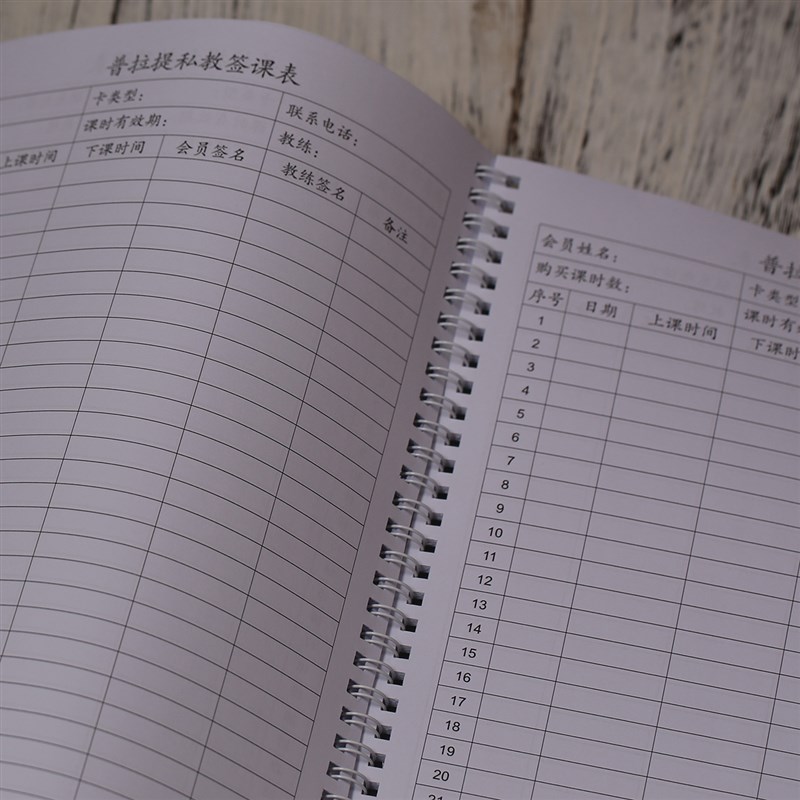 普拉提私教签课表
卡类型： 联系电话：
课时有效期： 教练：
上课时间 下课时间 会员签名 教练签名 备注
普拉
会员姓名： 卡类型
购买课时数： 课时有
序号 日期 上课时间 下课时
1
2
3
4
5
6
7
8
9
10
11
12
13
14
15
16
17
18
19
20
21